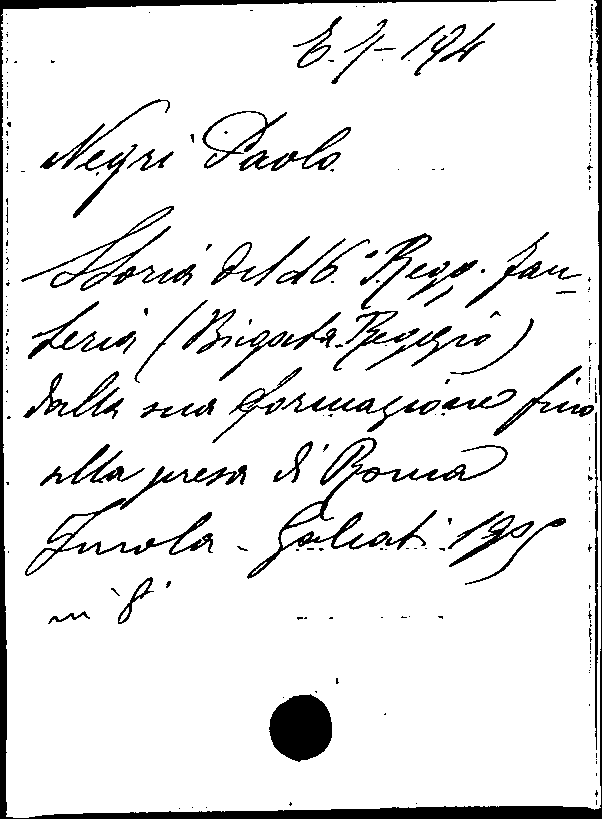 E. 7-194
Negri Paolo
Storia del 46° Regg. fan-
teria (Brigata Reggio)
dalla sua formazione fino
alla presa di Roma
Imola - Galeati 1905
in 8°